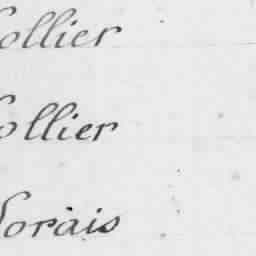 ollier
ollier
orais